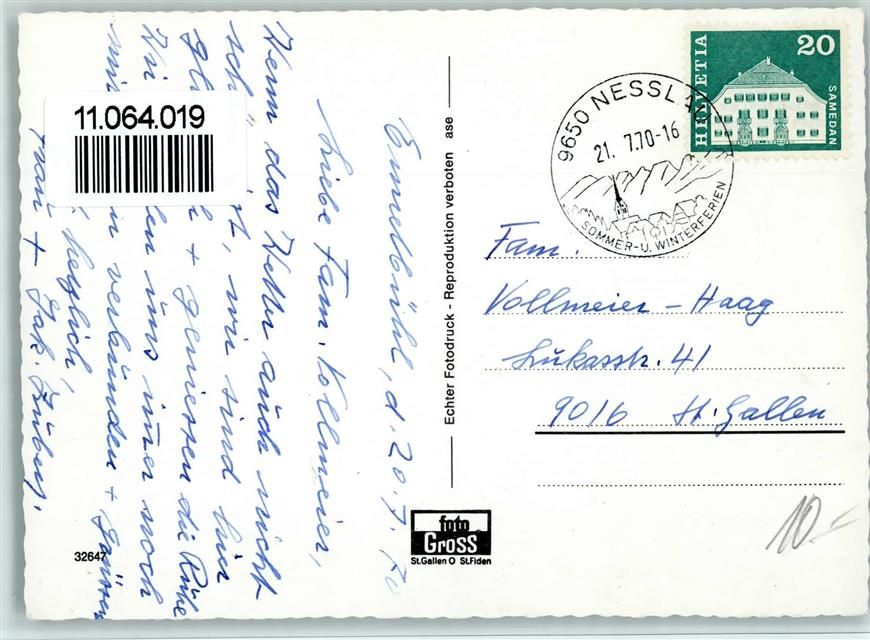 Ennetbühl, d. 20.7.70
Liebe Fam. Vollmeier,
Wenn das Wetter auch nicht
wir sind hier
+ geniessen die Ruhe
uns imer noch
verbunden + grüssen
herzlich,
+ Jak.
11.064.019
32647
Echter Fotodruck - Reproduktion verboten ase
foto
Gross
St.Gallen O St.Fiden
HELVETIA
20
SAMEDAN
9650 NESSLAU
21. 7.70-16
SOMMER-U. WINTERFERIEN
Fam.
Vollmeier-Haag
Lukasstr. 41
9016 St. Gallen
10.-